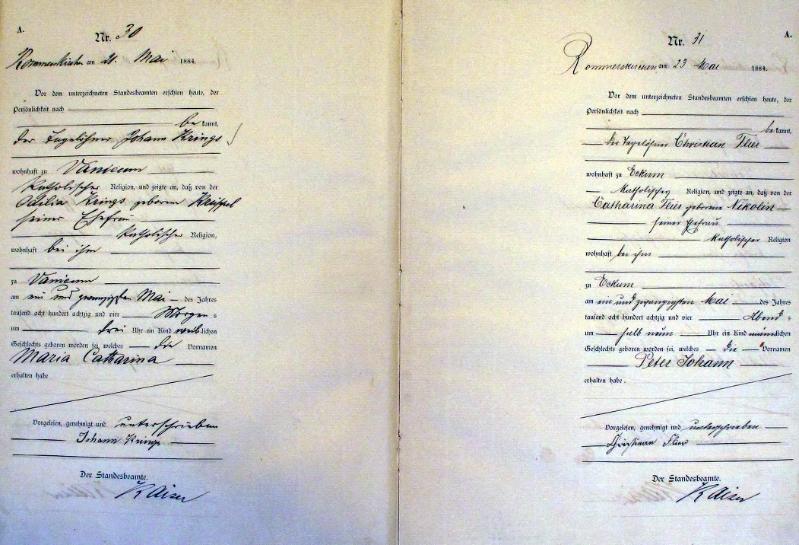 A.
Nr. 30
Rommerskirchen am 21. Mai 1884.
Vor dem unterzeichneten Standesbeamten erschien heute, der
Persönlichkeit nach
be kannt,
der Tagelöhner Johann Krings
wohnhaft zu Vanicum
katholischer Religion, und zeigte an, daß von der
Odilia Krings geborenen Krippel
seiner Ehefrau
katholischer Religion,
wohnhaft bei ihm
zu Vanicum
am ein und zwanzigsten Mai des Jahres
tausend acht hundert achtzig und vier Morgens
um drei Uhr ein Kind weiblichen
Geschlechts geboren worden sei, welches die Vornamen
Maria Catharina
erhalten habe
Vorgelesen, genehmigt und unterschrieben
Johann Krings
Der Standesbeamte.
Kaiser
A.
Nr. 31
Rommerskirchen am 23 Mai 1884.
Vor dem unterzeichneten Standesbeamten erschien heute, der
Persönlichkeit nach
be kannt,
der Tagelöhner Christian Flür
wohnhaft zu Eckum
katholischer Religion, und zeigte an, daß von der
Catharina Flür geborene Nikolin
seiner Ehefrau
katholischer Religion
wohnhaft bei ihm
zu Eckum
am ein und zwanzigsten Mai des Jahres
tausend acht hundert achtzig und vier Abends
um halb neun Uhr ein Kind männlichen
Geschlechts geboren worden sei, welches die Vornamen
Peter Johann
erhalten habe.
Vorgelesen, genehmigt und unterschrieben
Christian Flür
Der Standesbeamte.
Kaiser